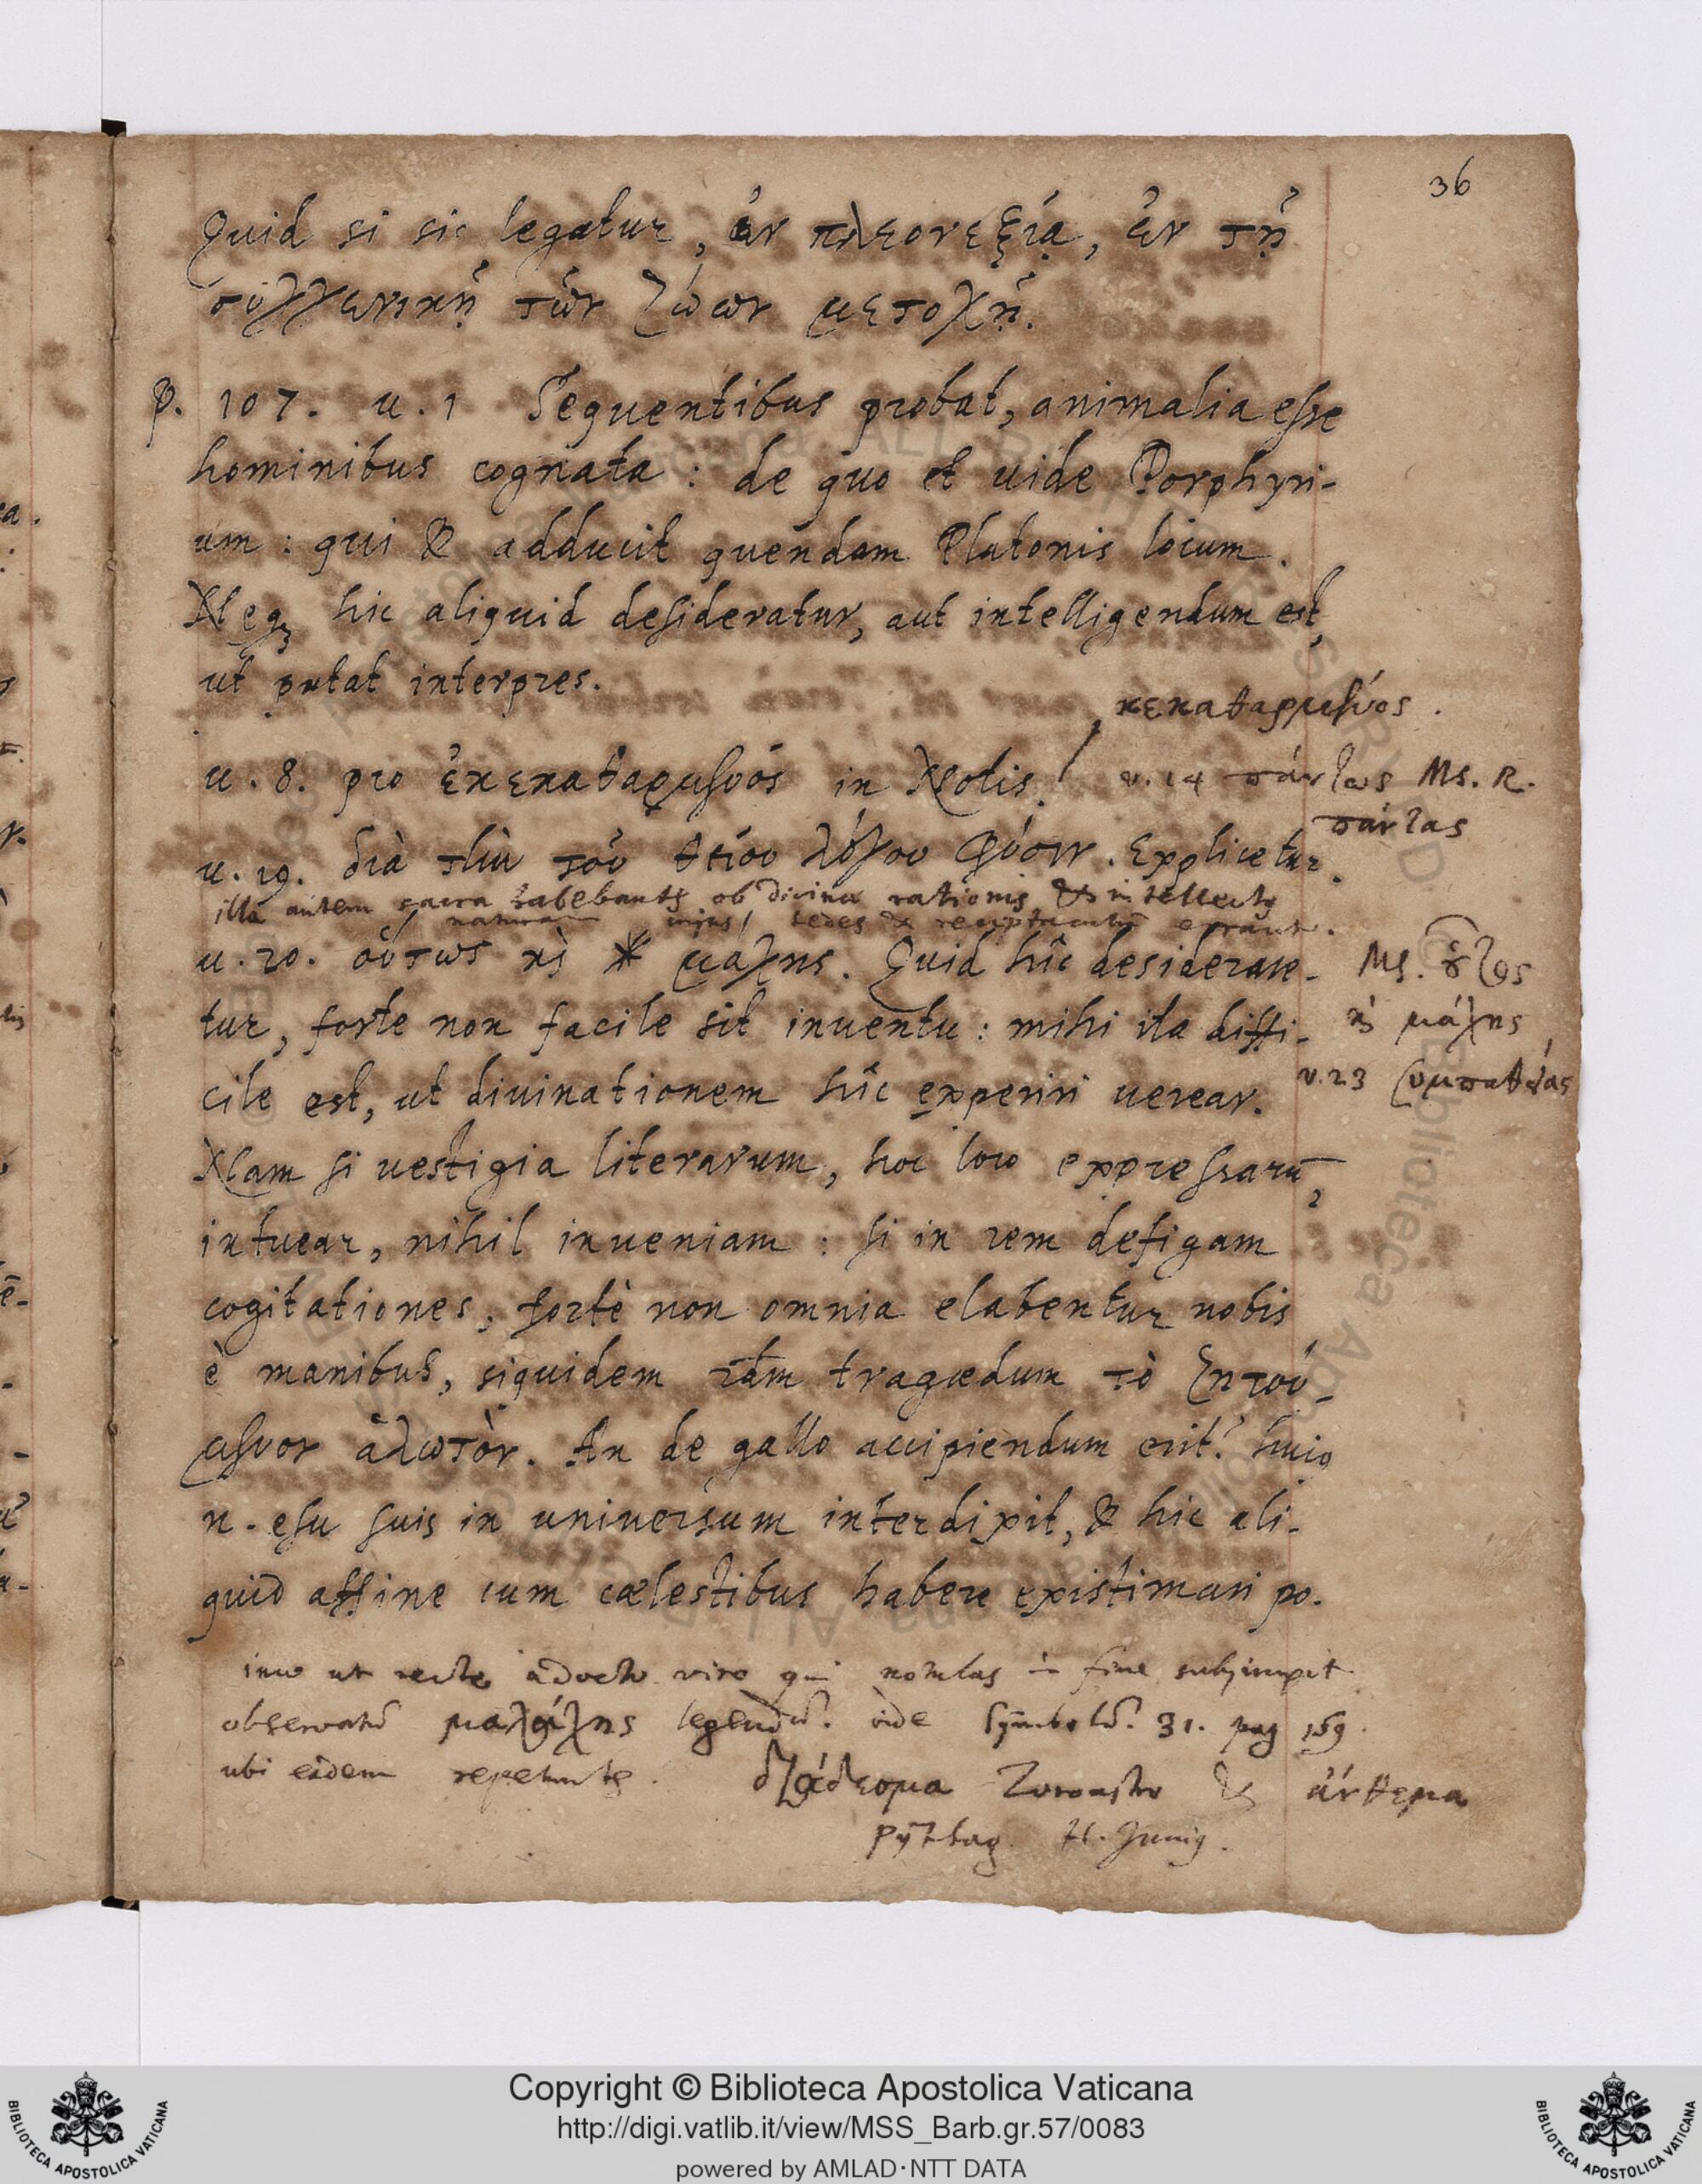 36
Quid si sic legatur, ἐν πλεονεξίᾳ, ἐν τῇ
συγγενικῇ τῶν ζώων μετοχῇ.
p. 107. u. 1 Sequentibus probat, animalia esse
hominibus cognata : de quo et uide Porphyri-
um : qui & adducit quendam Platonis locum.
Neqꝫ hic aliquid desideratur, aut intelligendum est,
ut putat interpres.
κεκαθαρμένος .
u. 8. pro ἐκεκαθαρμένος in Notis. / v. 14 πάντως Ms. R.
πάντας
u. 19. διὰ τὴν τοῦ θείου λόγου φύσιν. Explicetur.
illa autem sacra habebants ob divinæ rationis & intellectus
naturam cujus sedes & receptaculū erant.
u. 20. οὕτως κὶ * μαχης. Quid hîc desidera-
tur, forte non facile sit inuentu : mihi ita diffi-
cile est, ut diuinationem hîc experiri uerear.
Ms. ὅτος
κὶ μάχης
v. 23 συμπαθείας
Nam si uestigia literarum, hoc loco expressarū,
intuear, nihil inueniam : si in rem defigam
cogitationes, fortè non omnia elabentur nobis
è manibus, siquidem tragœdum τὸ ζητού-
μενον ἁλωτὸν. An de gallo accipiendum erit? huiꝰ
n. esu suis in uniuersum interdixit, & hic ali-
quid affine cum cælestibus habere existimari po.
imo ut recte a docto viro qui notulas in fine subjunxit
observatū μαλάχης legendū. vide Symbolū. 31. pag 159.
ubi eadem repetunts. Zoroastro & ἄνθεμα
Pythag. H. Juniꝰ.
Copyright © Biblioteca Apostolica Vaticana
http://digi.vatlib.it/view/MSS_Barb.gr.57/0083
powered by AMLAD·NTT DATA
BIBLIOTECA APOSTOLICA VATICANA
BIBLIOTECA APOSTOLICA VATICANA